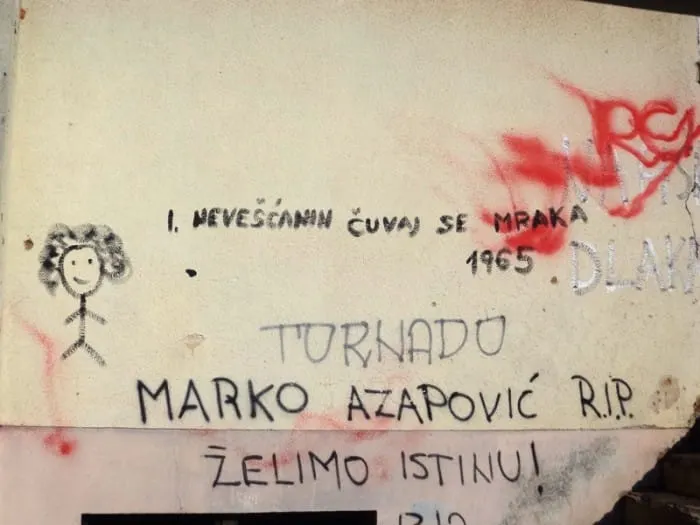 I. NEVEŠĆANIN ČUVAJ SE MRAKA
1965
TORNADO
MARKO AZAPOVIĆ R.I.P.
ŽELIMO ISTINU!